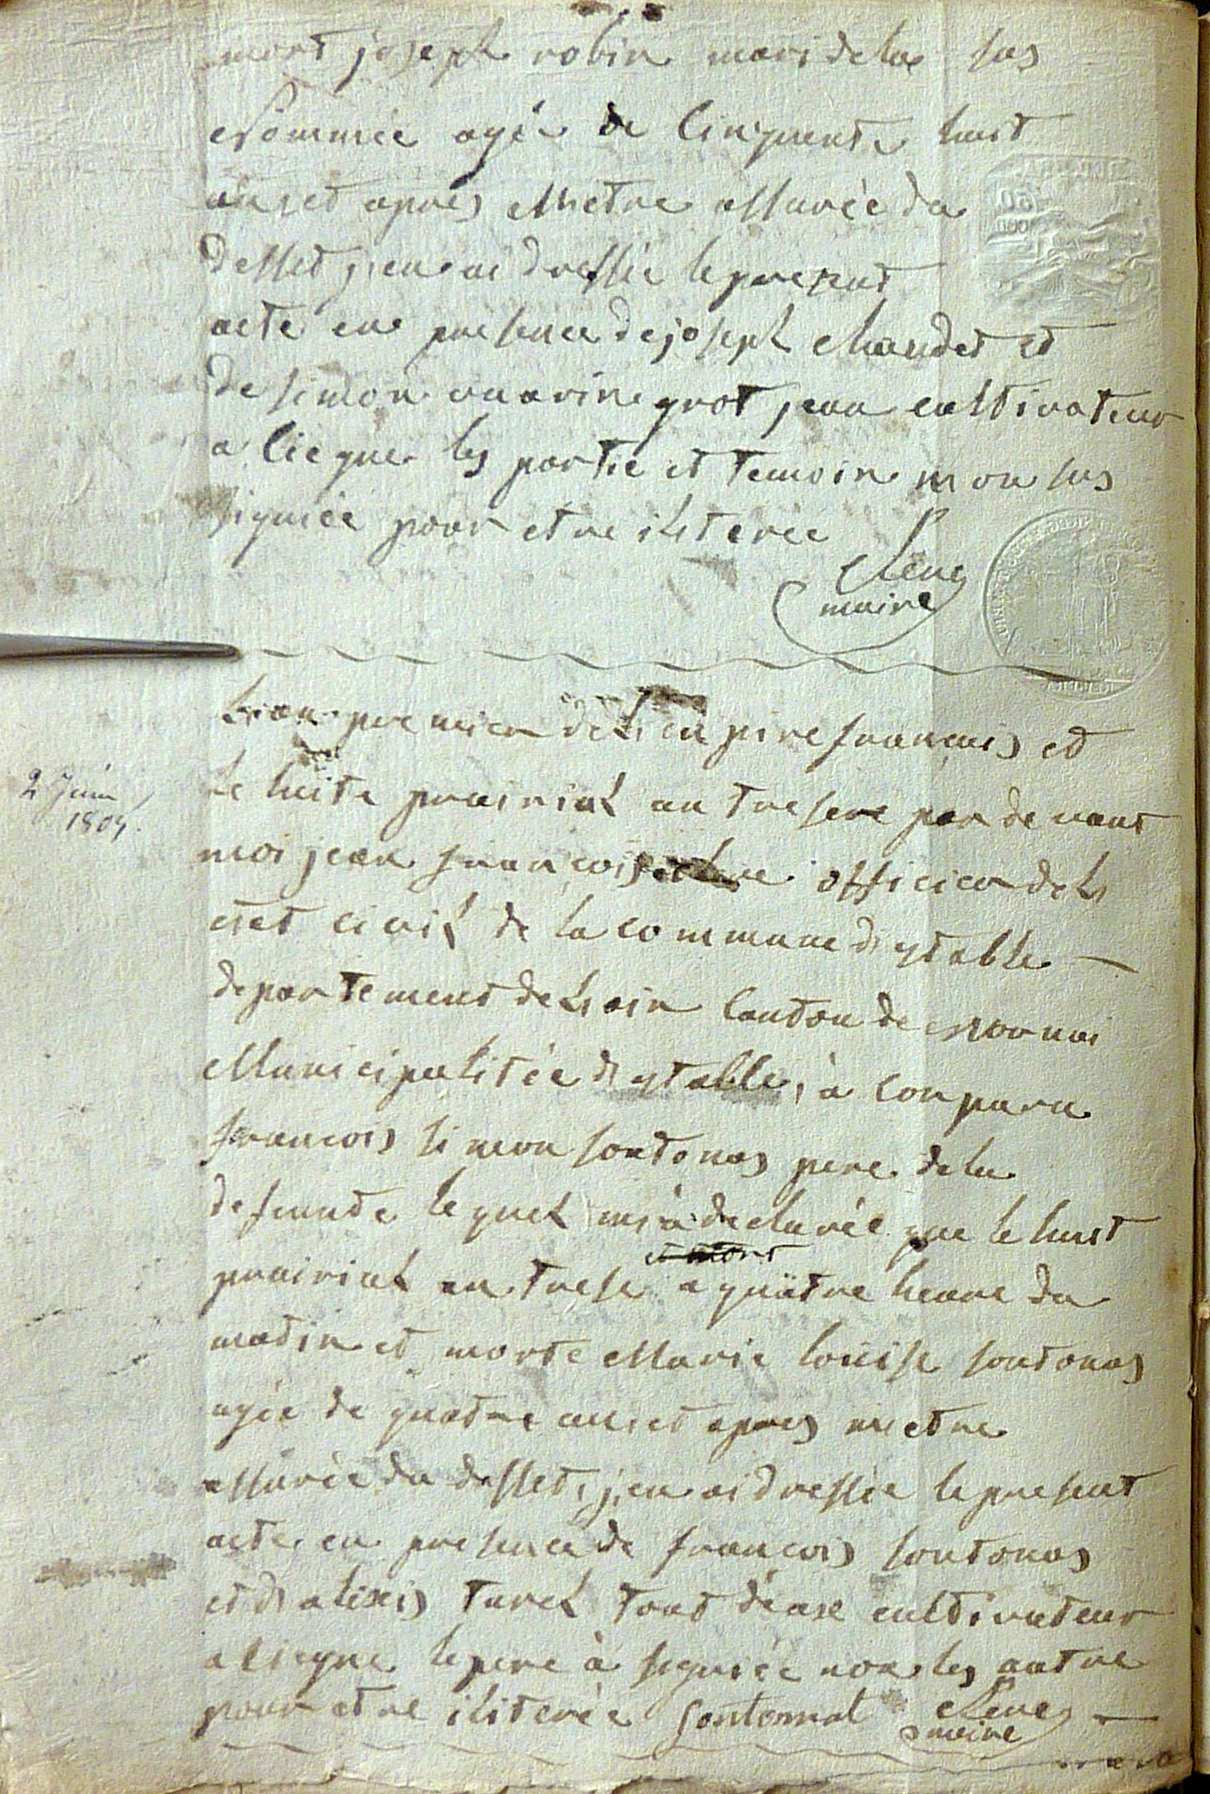 mort joseph robin mari de la sus
nommée agée de Cinquente huit
ans et apres metre assurée du
desset j,en ai dressée le present
acte en presence de joseph chaudet et
de simon grot jean cultivateur
a Ciegne les partie et temoin non sus
signée pour etre iliterée
Rene
maire
L,an premier de L,en pire francais et
2 Juin
1805
Le huite prairial an tresere par de vant
moi jean francois officier de L
etet civil de la commune d,ytable
departement de L,ain Canton de
Municipalitée d,ytable, à conparu
francois simon sontonas pere de la
defunte le quel m,à declarée que le huit
et mort
prairial an trese a quatre heure du
matin et morte Marie louise sontonas
agée de quatre ans et apres metre
assurée du desset, j,en ai dressée le present
acte, en presence de francois sontonas
et d,alexis turel tout deax cultivateur
a Ciegne le pere à signée non les autre
pour etre iliterée Sontonnat Rene
maire